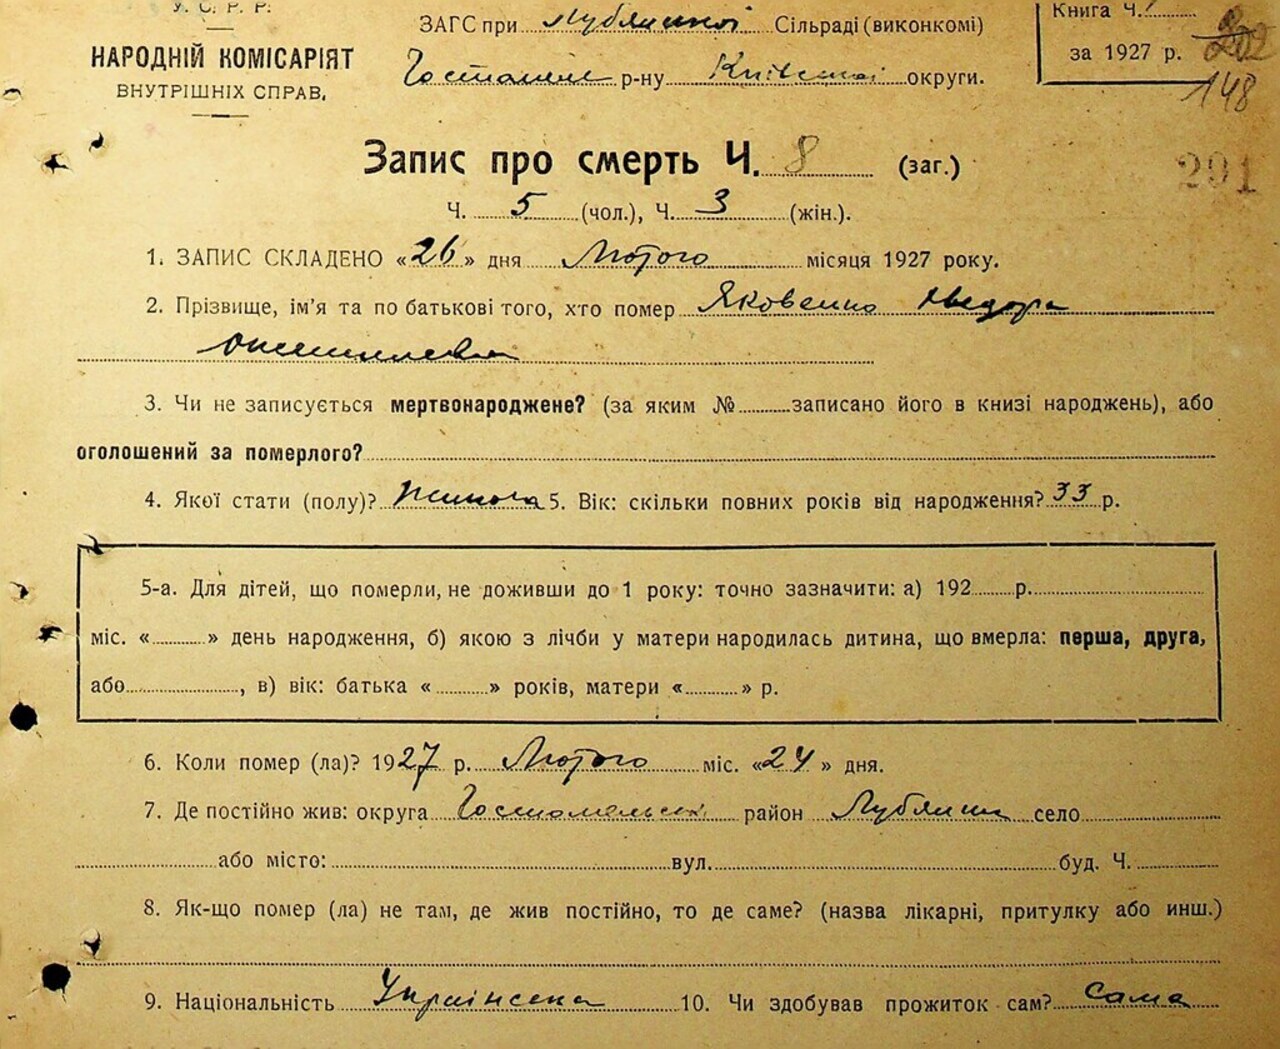 У. С. Р. Р.
НАРОДНІЙ КОМІСАРІЯТ
ВНУТРІШНІХ СПРАВ.
ЗАГС при Лублянській Сільраді (виконкомі)
Гостомельс р-ну Київської округи.
Книга Ч.
за 1927 р.
202
148
201
Запис про смерть Ч. 8 (заг.)
Ч. 5 (чол.), Ч. 3 (жін.).
1. ЗАПИС СКЛАДЕНО «26» дня Лютого місяця 1927 року.
2. Прізвище, ім'я та по батькові того, хто помер Яковенко
3. Чи не записується мертвонароджене? (за яким № записано його в книзі народжень), або
оголошений за померлого?
4. Якої стати (полу)? Жиноча 5. Вік: скільки повних років від народження? 33 р.
5-а. Для дітей, що померли, не доживши до 1 року: точно зазначити: а) 192 р.
міс. « » день народження, б) якою з лічби у матери народилась дитина, що вмерла: перша, друга,
або , в) вік: батька « » років, матери « » р.
6. Коли помер (ла)? 1927 р. Лютого міс. «24» дня.
7. Де постійно жив: округа Гостомельськ район Лублянка село
або місто: вул. буд. Ч.
8. Як-що помер (ла) не там, де жив постійно, то де саме? (назва лікарні, притулку або инш.)
9. Національність Українська 10. Чи здобував прожиток сам? сама